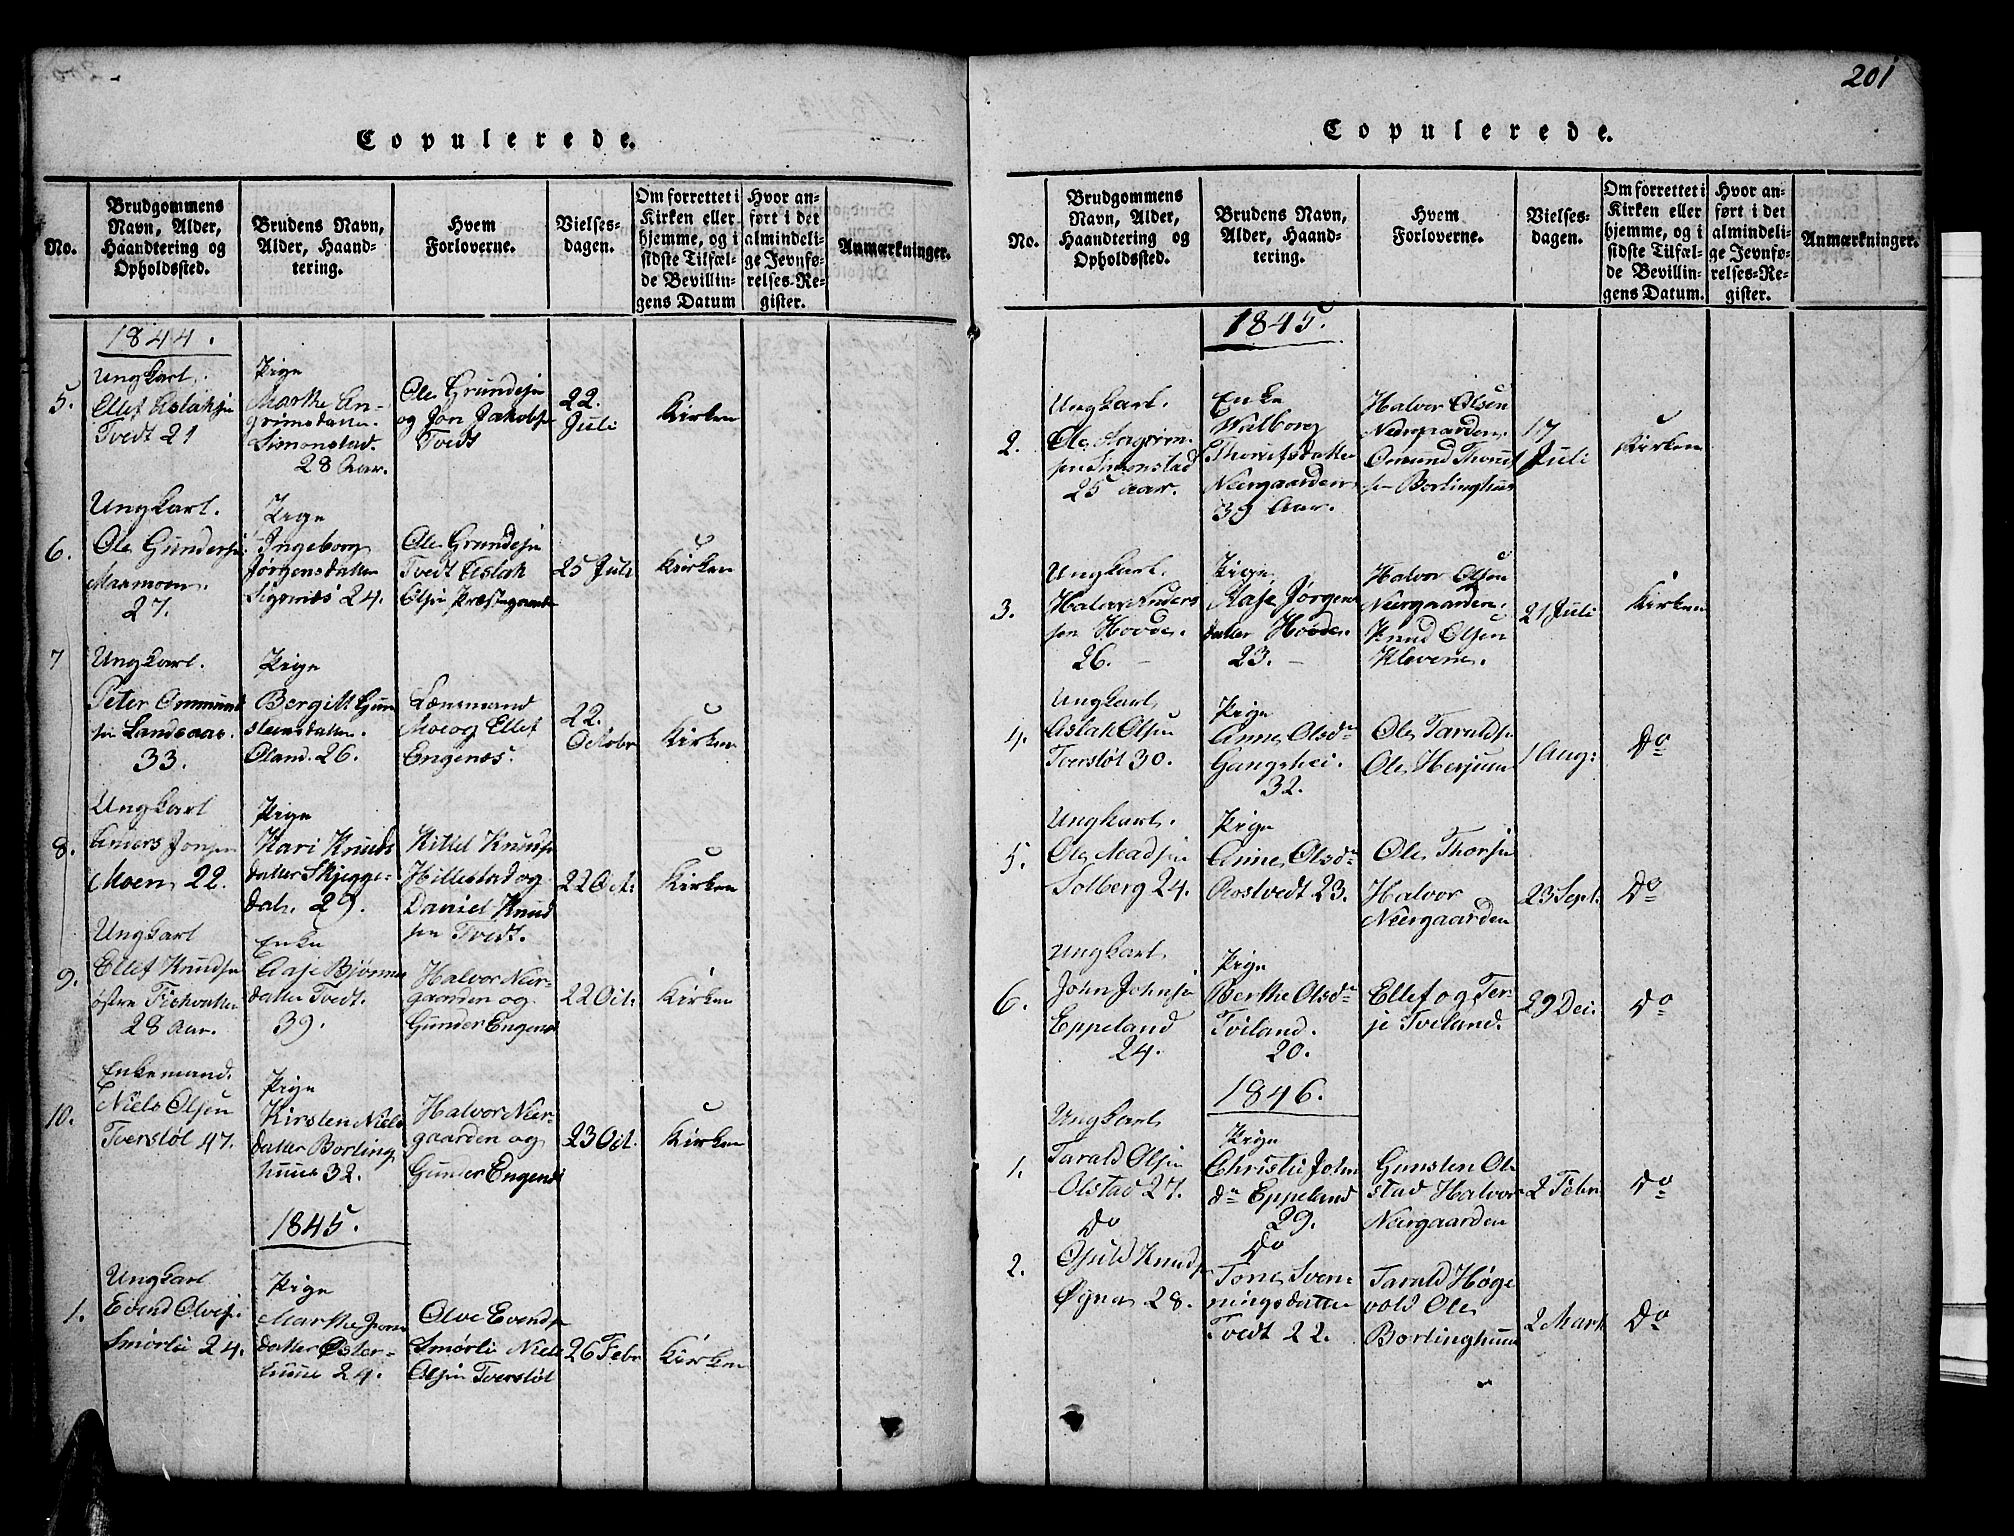 201
Copulerede.
No.
Brudgommens
Navn, Alder,
Haandtering og
Opholdssted.
Brudens Navn,
Alder, Haand-
tering.
Hvem
Forloverne.
Vielses-
dagen.
Om forrettet i
Kirken eller
hjemme, og i
sidste Tilfæl-
de Bevillin-
gens Datum
Hvor an-
ført i det
almindeli-
ge Jevnfø-
relses-Re-
gister.
Anmærkninger.
1844.
5.
Ungkarl.
Ellef Aslaksen
Tvedt 21
Pige
Marthe An-
grimsdatter
Simonstad.
28 Aar.
Ole Grundesen
og Jon Jakobsen
Tvedt
22.
Juli
Kirken
6.
Ungkarl.
Ole Gundersen
27.
Pige
Ingeborg
Jørgensdatter
Sigenæs 24.
Ole Grundesen
Tvedt Aslak
Olsen Præstegaarden
25 Juli
Kirken
7
Ungkarl.
Peter Ommund
sen Landsaas.
33.
Pige
Bergitt Gun
steinsdatter.
Øland. 26.
Lænsmand
Moe og Ellef
Engenæs.
22.
October
Kirken
8.
Ungkarl
Anders Jonsen
Moen 22.
Pige
Kari Knuds
datter Skjegge-
dal. 29.
Kittel Knudsen
Hillestad og
Daniel Knud
sen Tvedt.
22 Oct.
Kirken
9.
Ungkarl
Ellef Knudsen
østre
28 Aar.
Enke
Aase Bjørns
datter Tvedt.
39.
Halvor Neer-
gaarden og
Gunder Engenæs
22 Oct.
Kirken
10.
Enkemand.
Niels Olsen
Tverstøl 47.
Pige
Kirsten Niels
datter Borling
huus 32.
Halvor Neer-
gaarden og
Gunder Engenæs
23 Oct.
Kirken
1845.
1.
Ungkarl
Evend Olvesen
Smørli 24.
Pige
Marthe Jens
datter Øster-
huus 24.
Olve Evendsen
Smørli Niels
Olsen Tverstøl
26 Febr
Kirken
Copulerede.
No.
Brudgommens
Navn, Alder,
Haandtering og
Opholdssted.
Brudens Navn,
Alder, Haand-
tering.
Hvem
Forloverne.
Vielses-
dagen.
Om forrettet i
Kirken eller
hjemme, og i
sidste Tilfæl-
de Bevillin-
gens Datum.
Hvor an-
ført i det
almindeli-
ge Jevnfø-
relses-Re-
gister.
Anmærkninger.
1845.
2.
Ungkarl.
Ole Angrim-
sen Simonstad
25 Aar.
Enke
Walborg
Thorifsdatter
Neergaarden
39 Aar.
Halvor Olsen
Neergaarden.
Osmund Thoms
sen Borlinghuus
17
Juli
Kirken
3.
Ungkarl.
Halvor Anders
sen Hovde.
26.
Pige
Aase Jørgens
datter Hovde.
23.
Halvor Olsen
Neergaarden.
Knud Olsen
Klevene.
21 Juli
Kirken
4.
Ungkarl
Aslak Olsen
Tverstøl 30.
Pige
Anne Olsdr
Gangshei.
32.
Ole Taraldsen
Ole Herjuus
1 Aug:
Do
5.
Ungkarl.
Ole Madsen
Solberg 24.
Pige
Anne Olsdr
Rostvedt 23.
Ole Thorsen
Halvor
Neergaarden
23 Sept.
Do
6.
Ungkarl
John Johnsen
Eppeland
24.
Pige
Berthe Olsdr
Tveland.
20.
Ellef og Ter-
je Tveland.
29 Dec.
Do
1846.
1.
Ungkarl
Tarald Olsen
Olstad 27.
Pige
Christie John
dr Eppeland
29.
Gunsten Ol-
stad Halvor
Neergaarden
2 Febr
Do
2.
Do
Ojuld Knudsen
Øgna 28.
Do
Tone Sven-
ningsdatter
Tvedt 22.
Tarald Høge
vold Ole
Borlinghuus
2 Mart
Do